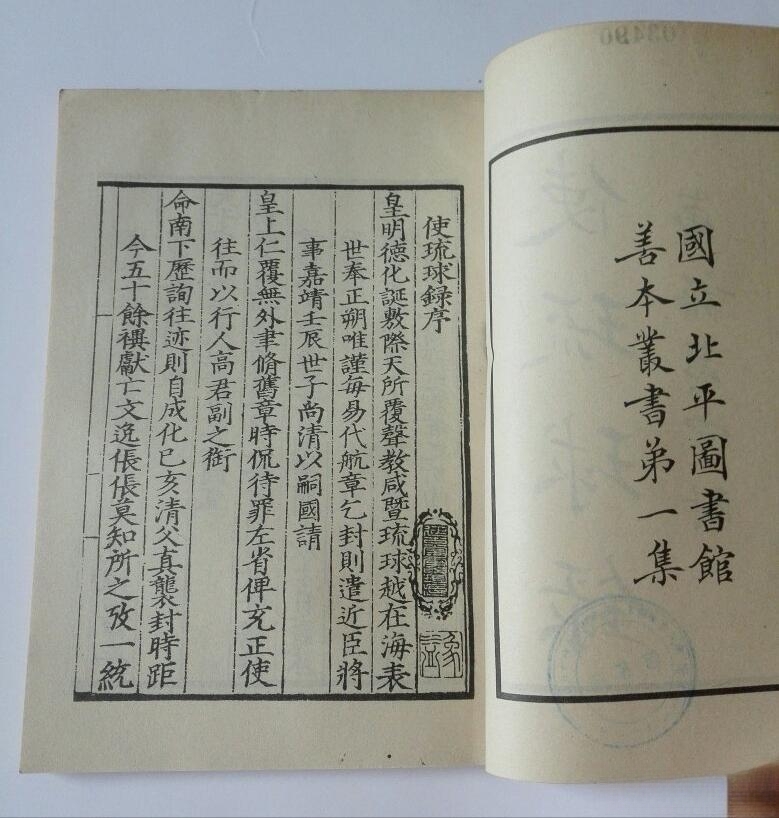 國立北平圖書館
善本叢書第一集
使琉球録序
皇明德化誕敷際天所覆聲教咸暨琉球越在海表
世奉正朔唯謹每易代航章乞封則遣近臣將
事嘉靖壬辰世子尚清以嗣國請
皇上仁覆無外聿脩舊章時侃待罪左省俾充正使
往而以行人高君副之銜
命南下歷詢往迹則自成化己亥清父真襲封時距
今五十餘禩獻亡文逸倀倀莫知所之攷一統
03490